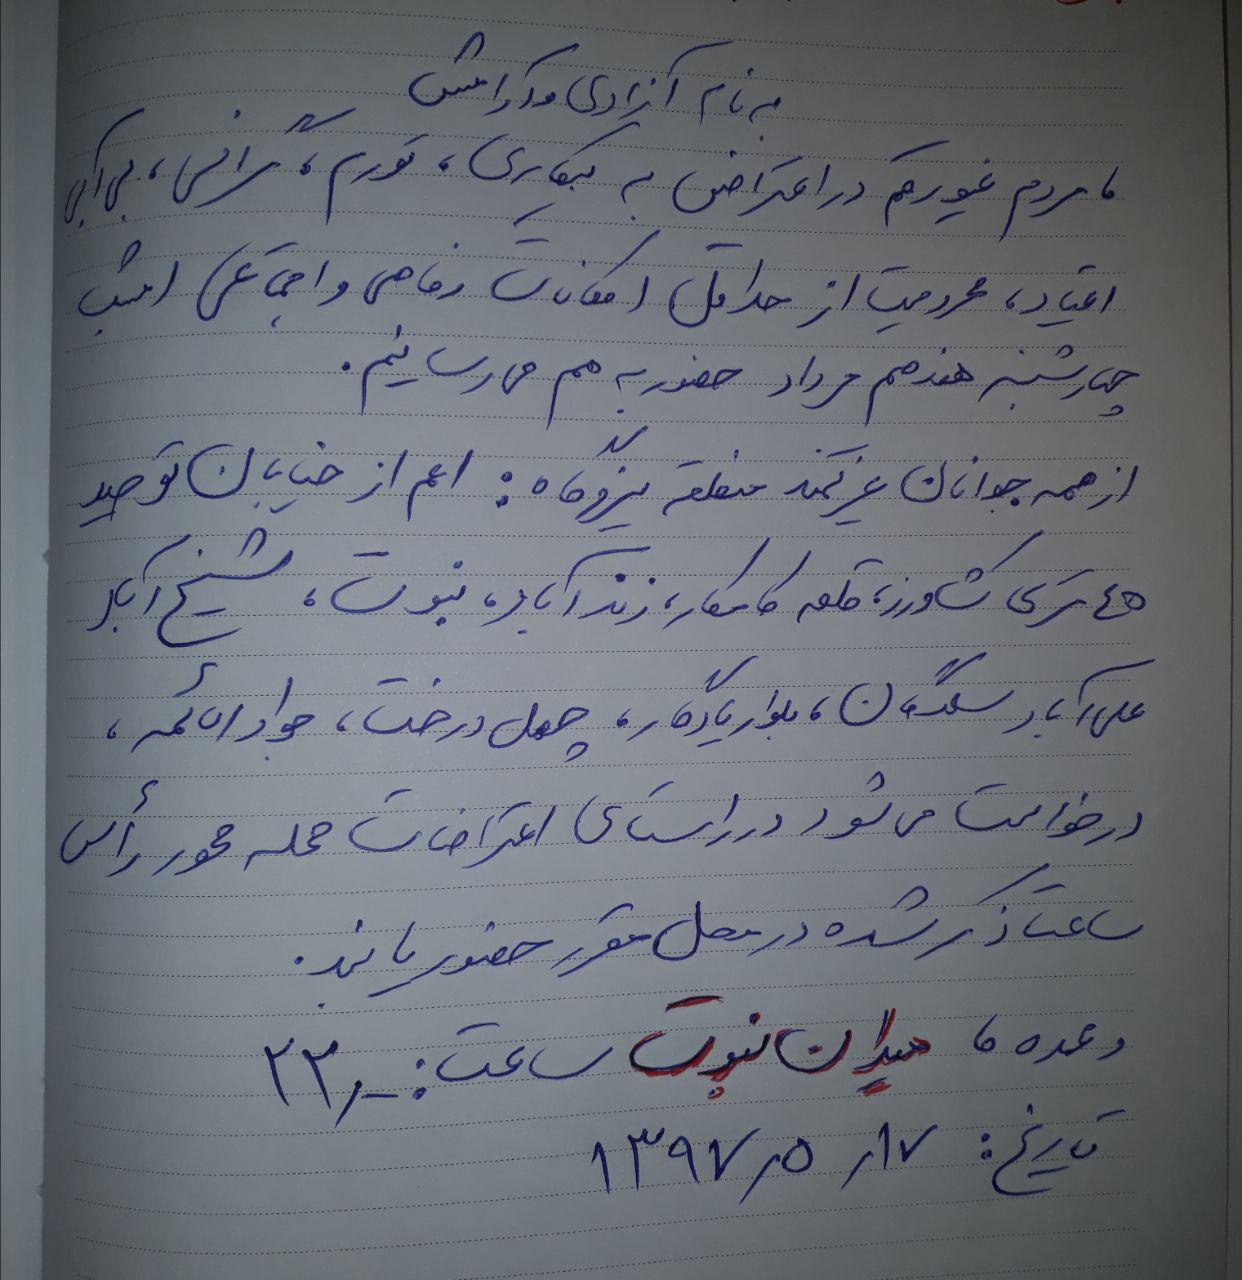 به نام آزادی و آرامش
ما مردم غیور قم در اعتراض به بیکاری، تورم، گرانی، بی آبی
اعتیاد، محرومیت از حداقل امکانات رفاهی و اجتماعی امشب
چهارشنبه هفدهم مرداد حضور به هم می رسانیم.
از همه جوانان غیرتمند منطقه نیروگاه: اعم از خیابان توحید
۴۵ متری کشاورز، قلعه کامکار، زند آباد، نبوت، شیخ آباد
علی آباد سعدگان، بلوار یادگار، چهل درخت، جواد الائمه،
درخواست می شود در راستای اعتراضات محله محور رأس
ساعت ذکر شده در محل مقرر حضور یابند.
وعده ما میدان نبوت ساعت: ۲۳٫۰۰
تاریخ: ۱۷٫ ۵٫ ۱۳۹۷